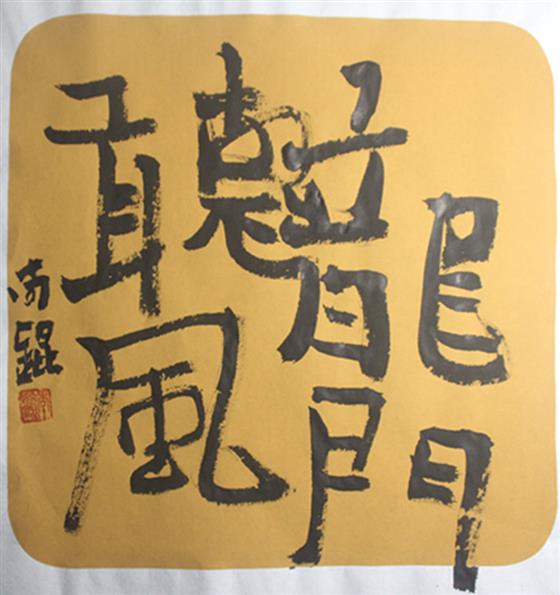 龍門
聽風